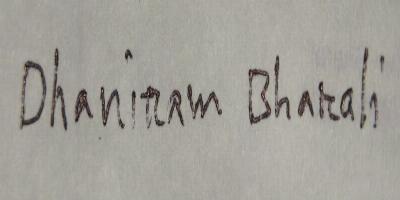 Dhaniram Bharali